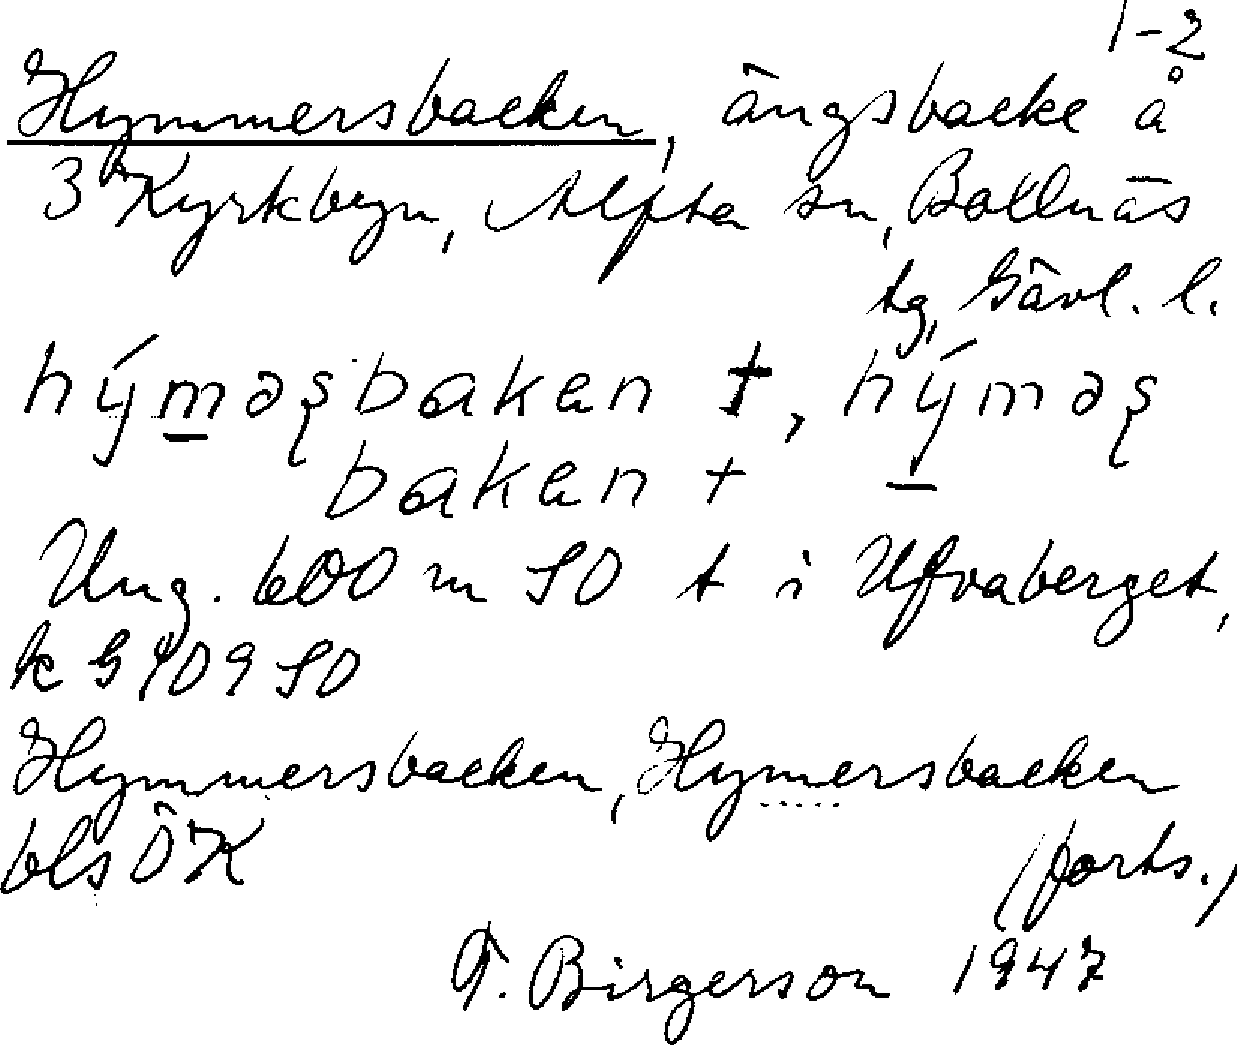 1-2
Hymmersbacken, ängsbacke å
3 Kyrkbyn, Alfta sn, Bollnäs
tg, Gävl. l.
hýməʂbakan †, hýməʂ
bakan +
Ung. 600 m SO t i Ufvaberget,
k G 109 SO
Hymmersbacken, Hymersbacken
bls ÖK
(forts.)
T. Birgerson 1947